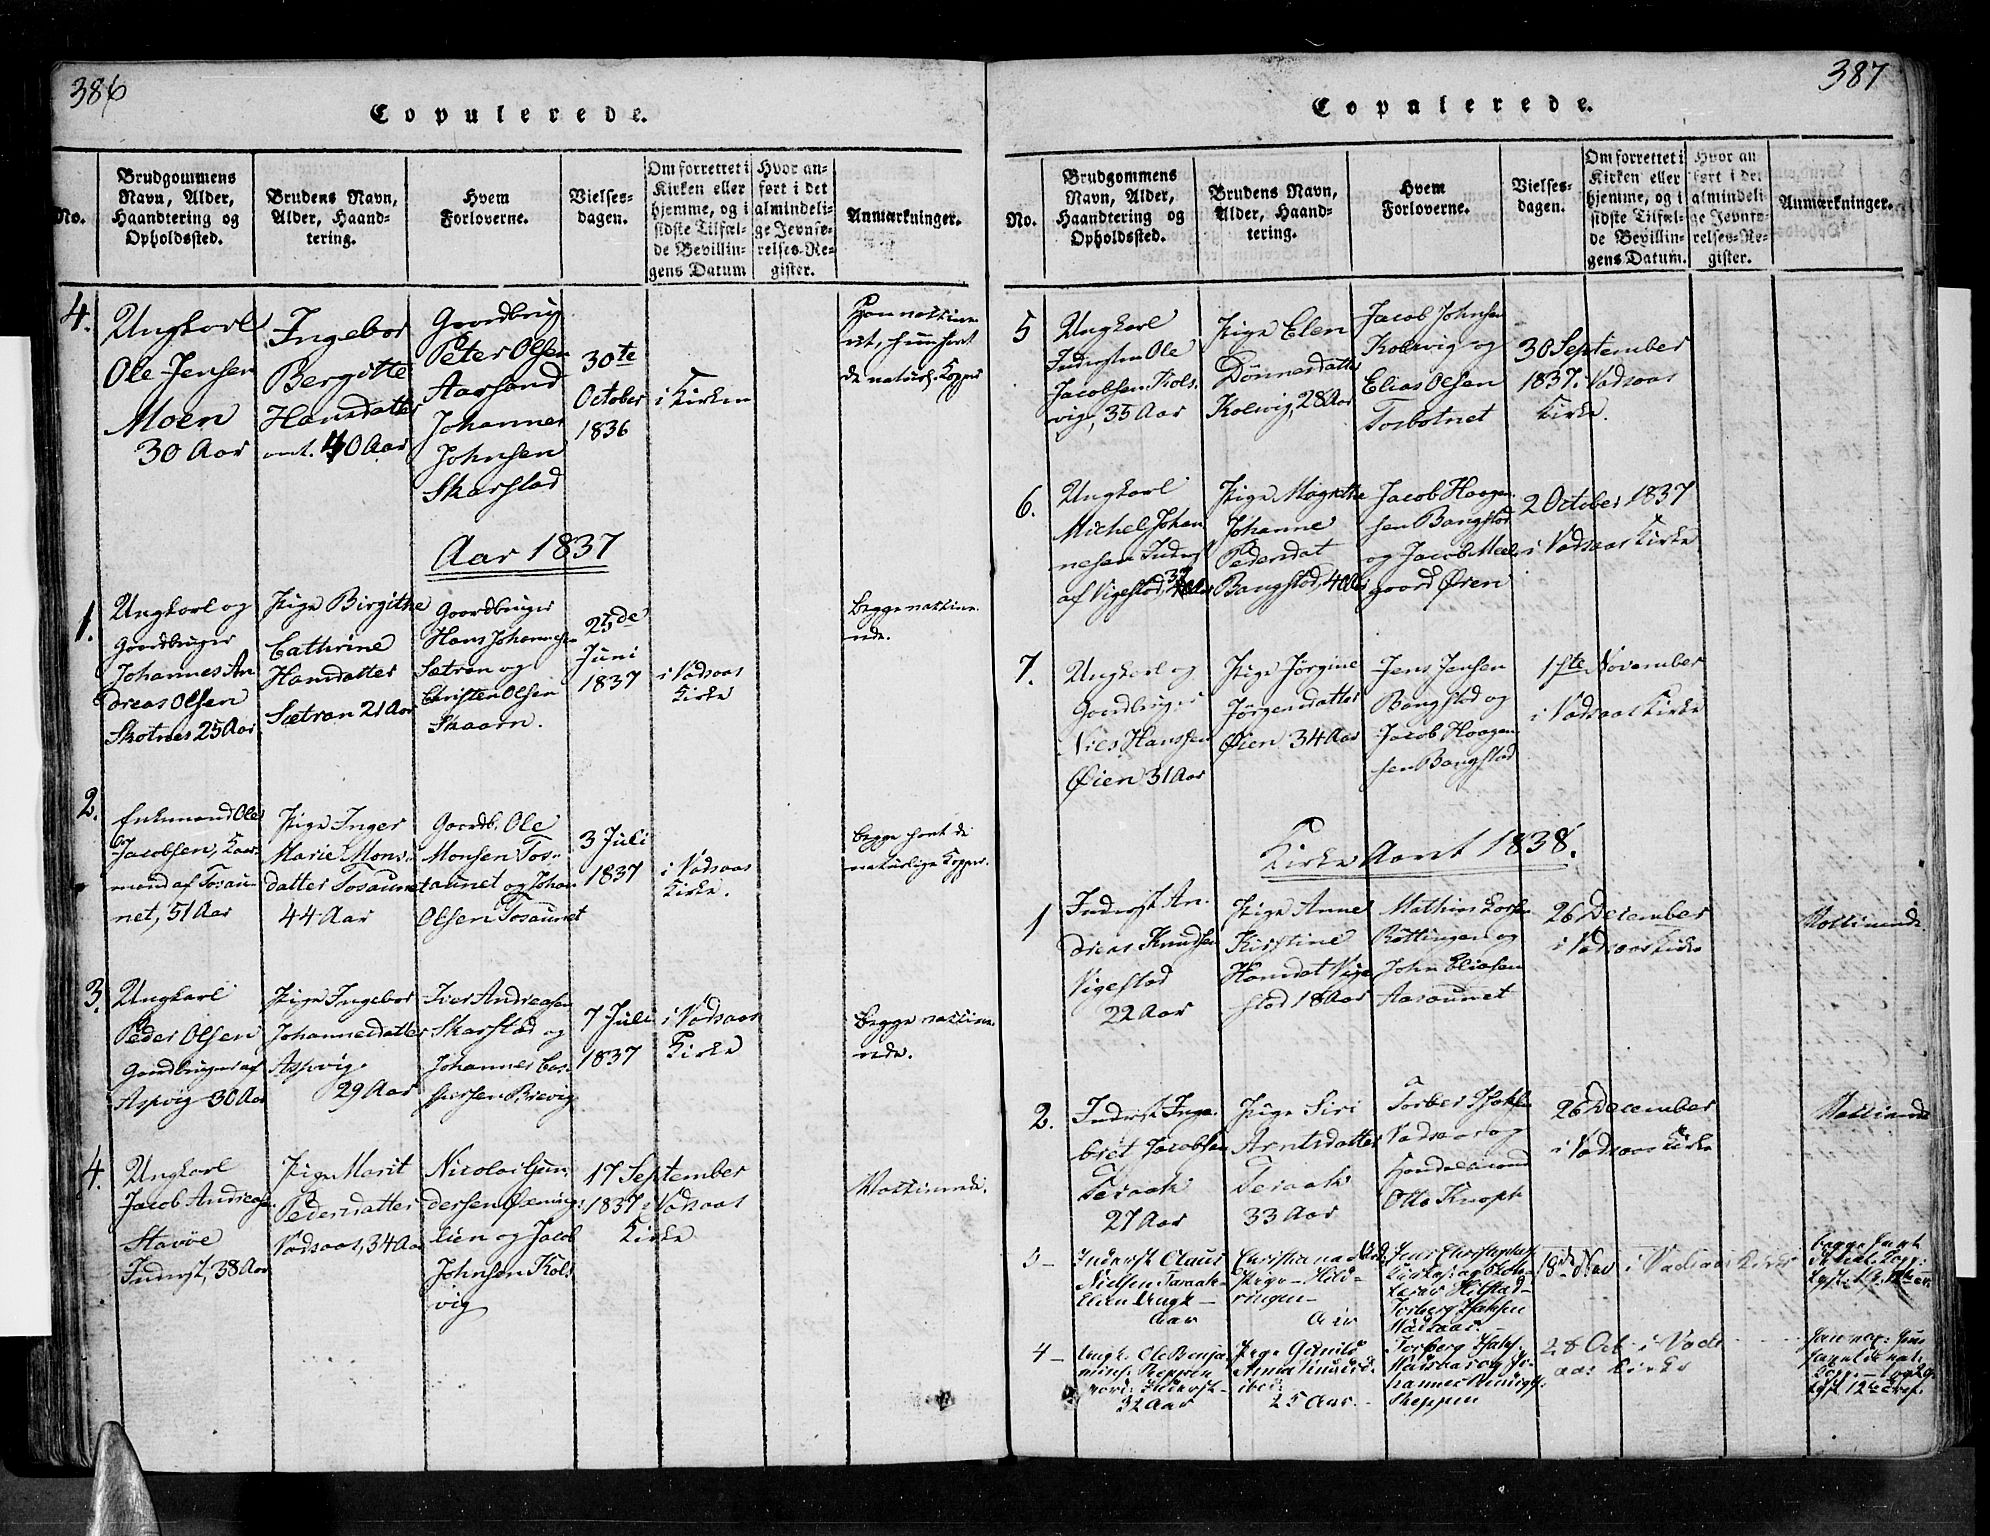 386
Copulerede.
No.
Brudgommens
Navn, Alder,
Haandtering og
Opholdssted.
Brudens Navn,
Alder, Haand-
tering.
Hvem
Forloverne.
Vielses-
dagen.
Om forrettet i
Kirken eller
hjemme, og i
sidste Tilfæl-
de Bevillin-
gens Datum
Hvor an-
ført i det
almindeli-
ge Jevnfø-
relses-Re-
gister.
Anmærkninger.
4.
Ungkarl
Ole Jensen
Moen
30 Aar
Ingebor
Bergitte
Hansdatter
40 Aar
Gaardbrug
Peter Olsen
Aarsand
Johannes
Johnsen
Skarstad
30te
October
1836
i Kirken
Aar 1837
1.
Ungkarl og
Gaardbruger
Johannes An
dreas Olsen
Skotnes 25 Aar
Pige Birgithe
Cathrine
Hansdatter
Sætran 21 Aar
Gaardbruger
Hans Johannesen
Sætran og
Christen Olsen
Skaarn.
25de
Juni
1837
i Vadsaas
Kirke
begge vaccine
rede.
2.
Enkemand Ole
Jacobsen, Kaar
mand af Tosaun
net, 51 Aar
Pige Inger
Marie Mons-
datter Tosaunet
44 Aar
Gaardb. Ole
Monsen Tos-
aunet og Johan
Olsen Tosaunet
3 Juli
1837
i Vadsaas
Kirke.
begge havt de
naturlige Kopper.
3.
Ungkarl
Peder Olsen
Gaardbruger af
Aspvig 30 Aar
Pige Ingebor
Johannesdatter
Aspvig
29 Aar
Iver Andreasen
Skarstad og
Johannes Cas-
persen Brevig
7 Juli
1837
i Vadsaas
Kirke
begge vaccine
rede.
4.
Ungkarl
Jacob Andreasen
Stavøe
Inderst, 38 Aar
Pige Marit
Pedersdatter
Vadsaas, 34 Aar
Nicolai Gun
dersen
lien og Jacob
Johnsen Kols
vig
17 September
1837 i Vadsaas
Kirke
Vaccinerede.
387
Copulerede.
No.
Brudgommens
Navn, Alder,
Haandtering og
Opholdssted.
Brudens Navn,
Alder, Haand-
tering.
Hvem
Forloverne.
Vielses-
dagen.
Om forrettet i
Kirken eller
hjemme, og i
sidste Tilfæl-
de Bevillin-
gens Datum.
Hvor an
ført i det
almindeli-
ge Jevnfø-
relses-Re-
gister.
Anmærkninger.
5
Ungkarl
Inderst Ole
Jacobsen Kols-
vig, 35 Aar
Pige Elen
Dønnesdatter
Kolsvig, 28 Aar
Jacob Johnsen
Kolsvig og
Elias Olsen
Tosbotnet
30 September
1837 i Vadsaas
Kirke.
6.
Ungkarl
Michel Johan
nesen Inderst
af Vigestad,
Pige Magrethe
Johanne
Pedersdat
Bangstad,
Jacob Haagen
sen Bangstad
og Jacob Meel
gaard Øren
2 October 1837
i Vadsaas Kirke
7.
Ungkarl og
Gaardbruger
Niels Hanssen
Øien 31 Aar
Pige Jørgine
Jørgensdatter
Øien 34 Aar
Jens Jensen
Bangstad og
Jacob Haagen
sen Bangstad
1ste November
i Vadsaas Kirke
Kirke Aaret 1838.
1
Inderst An-
dreas Knudsen
Vigestad
22 Aar
Pige Anne
Kirstine
Hansdat Vige
stad 18 Aar
Mathias Larsen
Røttingen og
John Eliasen
Aasaunet
26 December
i Vadsaas Kirke
Vaccinerede
2.
Inderst Inge-
bret Jacobsen
Teraak
27 Aar
Pige Siri
Arntsdatter
Teraak
33 Aar
Torber Isaksen
Vadsaas og
Handelsmand
Otto Knoph
26 December
i Vadsaas Kirke
Vaccinerede
3 -
Inderst Claus
Nielsen Teraak-
Aar
Pige - Hild-
ringen -
Aar
Jens Christophers
Hilstad -
Torberg Isaksen
Vadsaas -
18de Nov i Vadsaas Kirke
begge havt
4 -
Ungk. Ole Benja
minsen Reppen
32 Aar
Pige Gunild
Anna Knudsd
25 Aar.
Torberg Isaks.
Vadsaas og Jo-
hannes
Reppen
28 Oct i Vads
aas Kirke